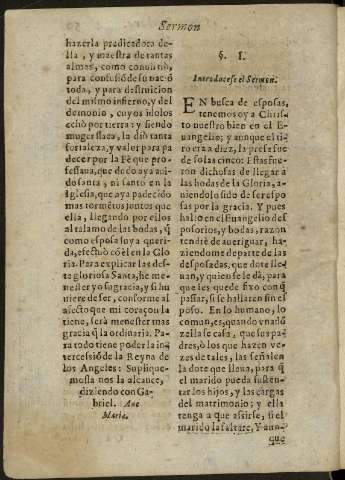 Sermon
hazerla predicadora de-
lla, y maestra de tantas
almas, como conuirtiò,
para confusiõ de su naciõ
toda, y para destruicion
del mismo infierno, y del
demonio, cuyos idolos
echò por tierra: y siendo
muger flaca, la diò tanta
fortaleza, y valor para pa
decer por la Fè que pro-
fessaua, que dudo aya aui-
do santa, ni santo en la
Iglesia, que aya padecido
mas tormẽtos juntos que
ella, llegando por ellos
al talamo de las bodas, q̃
como esposa suya queri-
da, efectuò cõ èl en la Glo
ria. Para explicar las des-
te gloriosa Santa, he me-
nester yo su gracia, y si hu
uiere de ser, conforme al
afecto que mi coraçon la
tiene, serà menester mas
gracia q̃ la ordinaria. Pa-
ra todo tiene poder la in-
tercessiõ de la Reyna de
los Angeles: Suplique-
mosla nos la alcance,
diziendo con Ga-
briel. Aue
Maria.
§. I.
Introducese el Sermon.
EN busca de esposas,
tenemos oy a Christo
nuestro bien en el E-
uangelio; y aunque el ti-
ro era a diez, la presa fue
de solas cinco: Estas fue-
ron dichosas de llegar à
las bodas de la Gloria, a-
uiendolo sido de ser espo-
sas por la gracia. Y pues
hallo en el Euangelio des
posorios, y bodas, razon
tendrè de aueriguar, ha-
ziendome de parte de las
desposadas, que dote lle-
uan, y quien se le dà, para
que les quede fixo con q̃
passar, si se hallaren sin es
poso. En lo humano, lo
comun, es, quando vna dõ
zella se casa, que sus pa-
dres, ò los que hazen ve-
zes de tales, las señalen
la dote que lleua, para q̃
el marido pueda susten-
tar los hijos, y las cargas
del matrimonio; y ella
tenga a que assirse, si el
marido la faltare. Y aun-
que